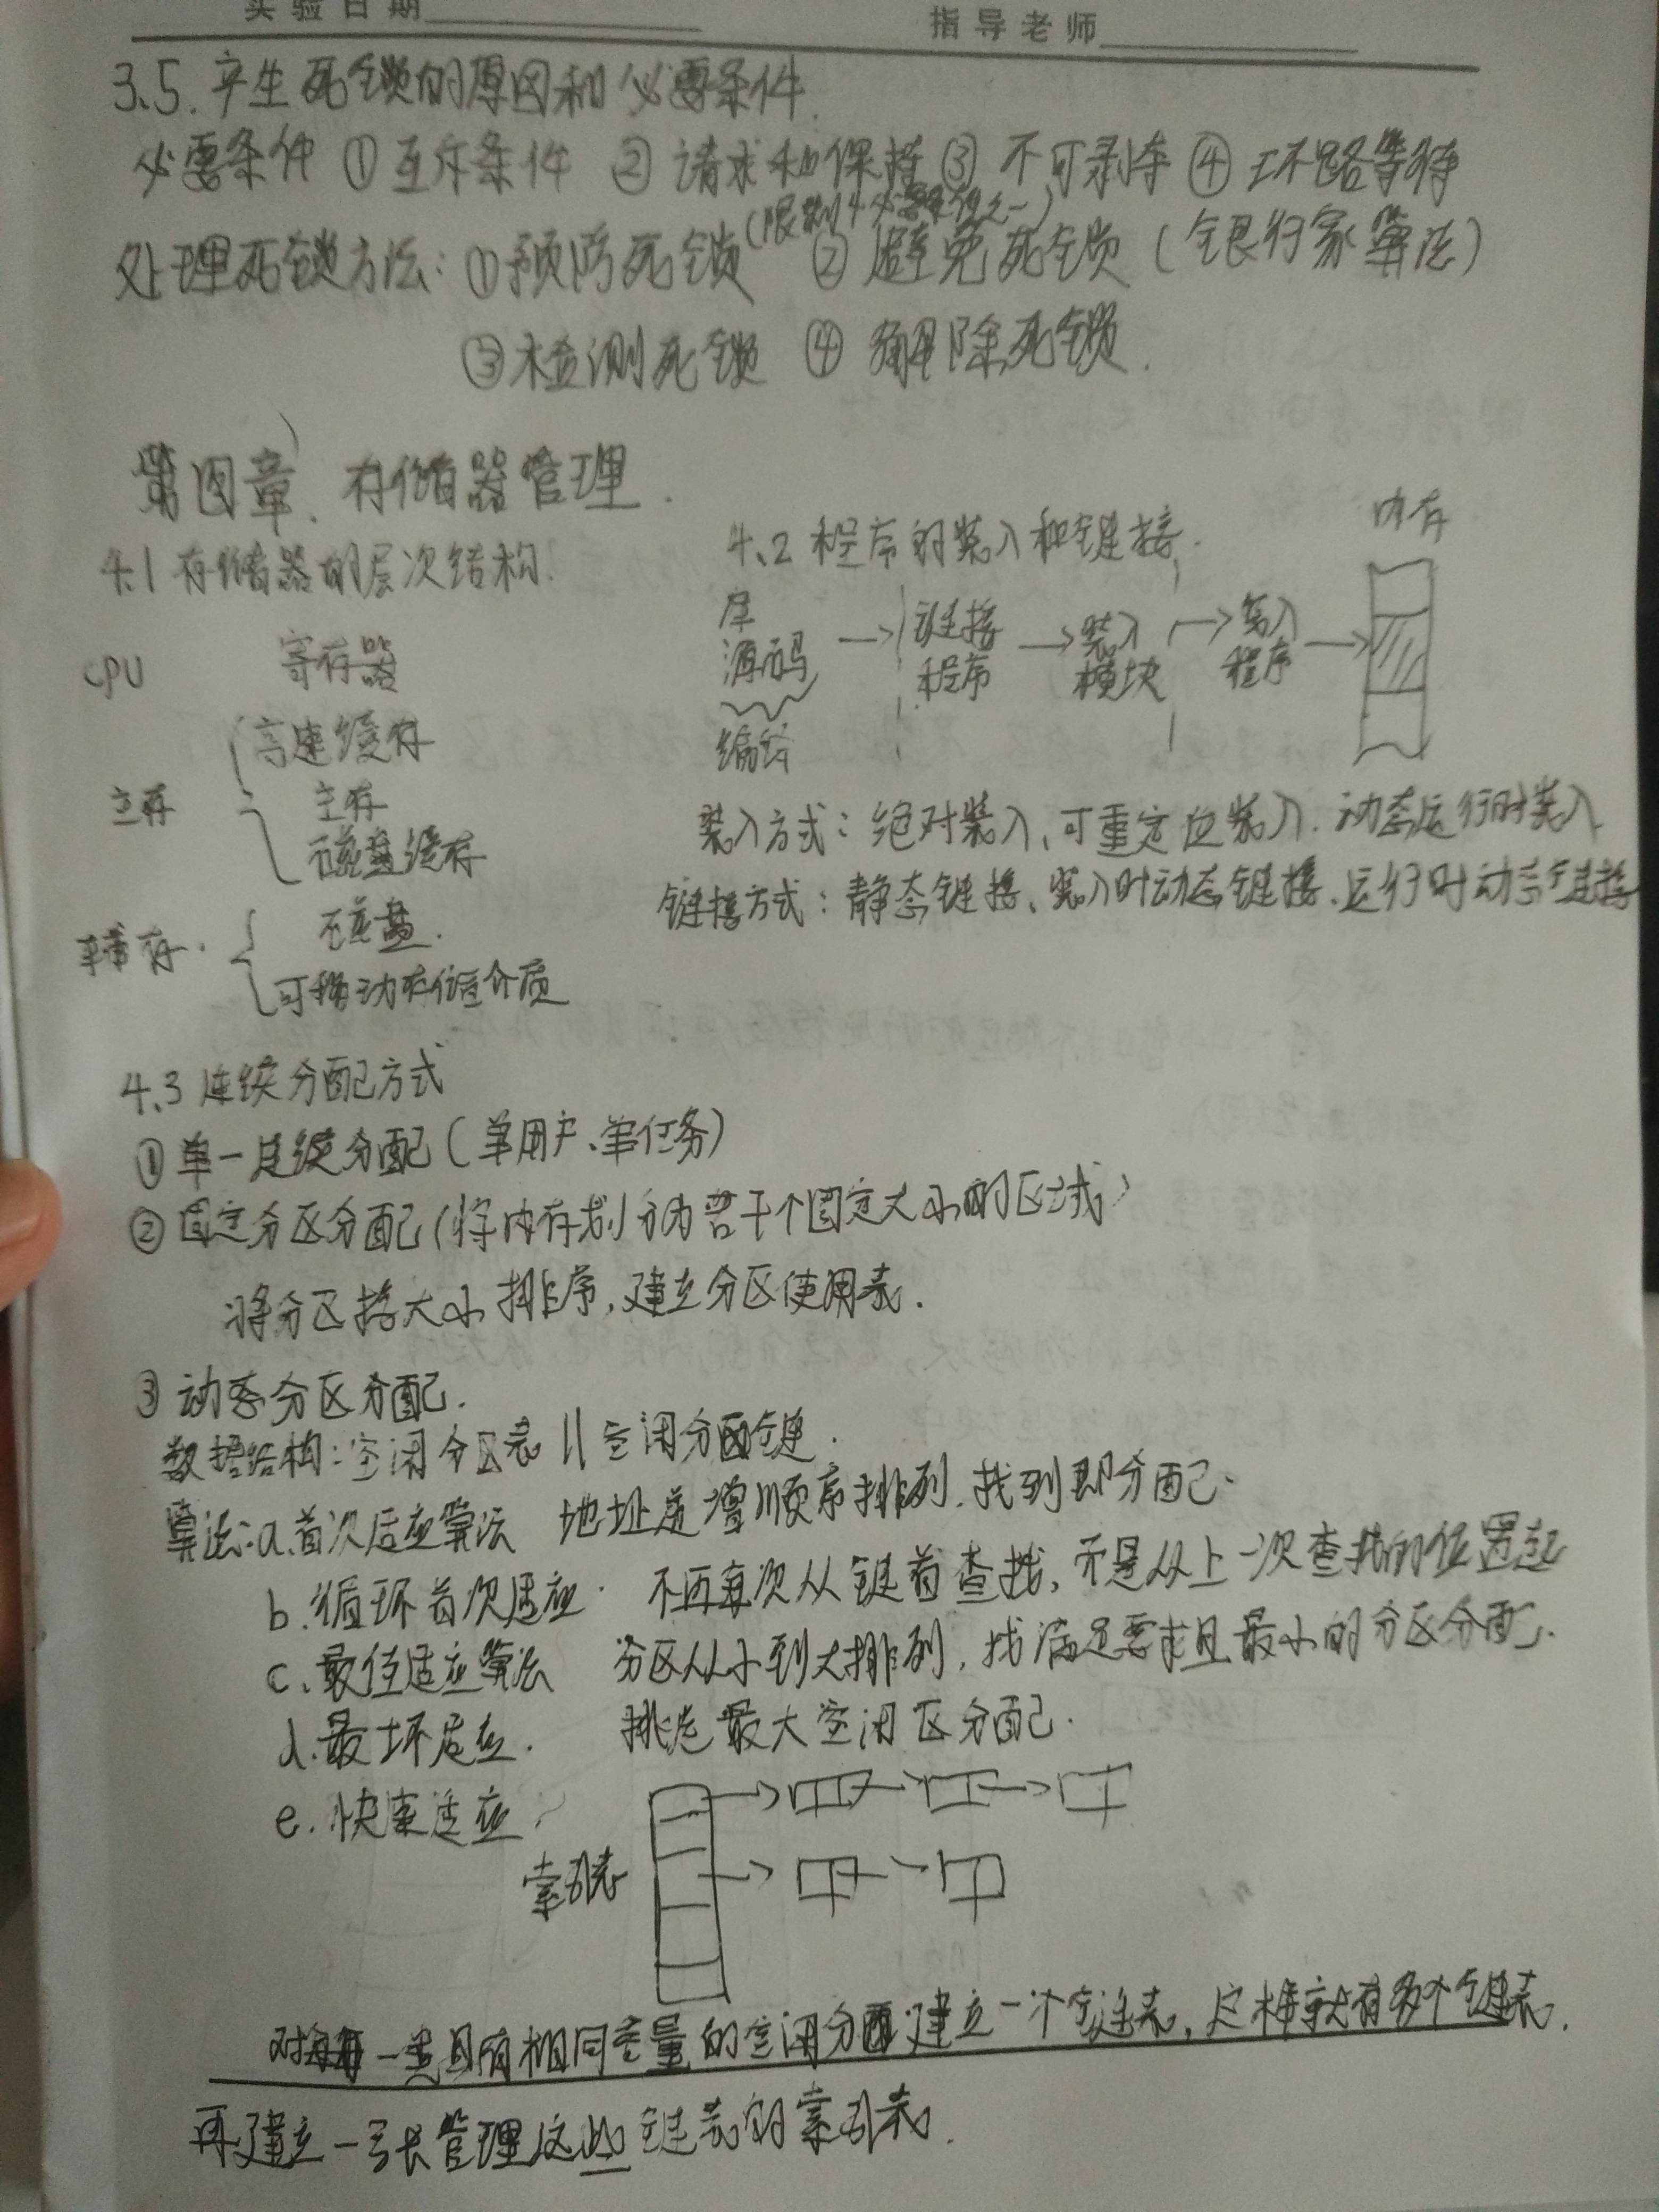 实验日期 指导老师
3.5. 产生死锁的原因和必要条件.
必要条件 ①互斥条件 ②请求和保持 ③不可剥夺 ④环路等待
(限制4个必要条件之一)
处理死锁方法: ①预防死锁 ②避免死锁 (银行家算法)
③检测死锁 ④解除死锁.
第四章、存储器管理.
4.1 存储器的层次结构.
CPU 寄存器
主存 高速缓存
主存
磁盘缓存
辅存. 磁盘.
可移动存储介质
4.2 程序的装入和链接.
内存
库
源码 → 链接程序 → 装入模块 → 装入程序 →
编译
装入方式: 绝对装入、可重定位装入、动态运行时装入
链接方式: 静态链接、装入时动态链接、运行时动态链接
4.3 连续分配方式
①单一连续分配 (单用户、单任务)
②固定分区分配 (将内存划分为若干个固定大小的区域)
将分区按大小排序, 建立分区使用表.
③动态分区分配.
数据结构: 空闲分区表 || 空闲分区链.
算法: a.首次适应算法 地址递增顺序排列. 找到即分配.
b.循环首次适应. 不再每次从链首查找, 而是从上一次查找的位置起
c.最佳适应算法 分区从小到大排列, 找满足要求且最小的分区分配.
d.最坏适应. 挑选最大空闲区分配.
e.快速适应.
索引表
对每一类具有相同容量的空闲分区建立一个链表, 这样就有多个链表.
再建立一张管理这些链表的索引表.